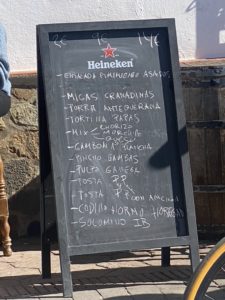 2€ 9€ 14€
Heineken
- ENSALADA PIMIENTOS ASADOS
- MIGAS GRANADINAS
- PORRA ANTEQUERANA
- TORTILLA PAPAS
- MIX CHORIZO
MORCILLA
QUESO
- GAMBON A PLANCHA
- PINCHO GAMBAS
- PULPO GALLEGA
- TOSTA
- TOSTA CON
- CODILLO HORNO
- SOLOMILLO IB